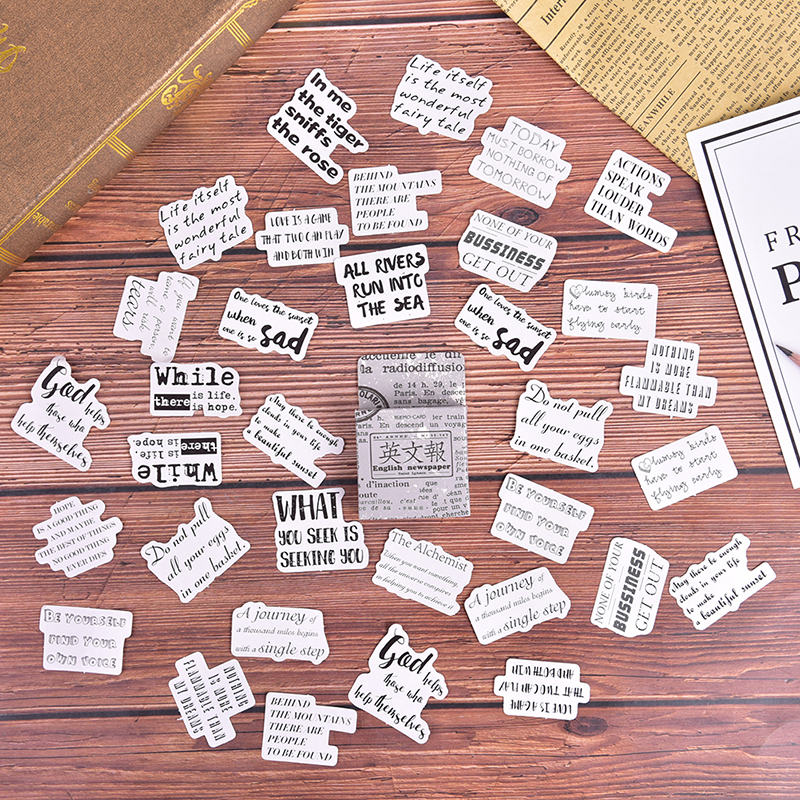 In me
the tiger
sniffs
the rose
Life itself
is the most
wonderful
fairy tale
TODAY
MUST BORROW
NOTHING OF
TOMORROW
ACTIONS
SPEAK
LOUDER
THAN WORDS
BEHIND
THE MOUNTAINS
THERE ARE
PEOPLE
TO BE FOUND
Life itself
is the most
wonderful
fairy tale
LOVE IS A GAME
THAT TWO CAN PLAY
AND BOTH WIN
NONE OF YOUR
BUSSINESS
GET OUT
ALL RIVERS
RUN INTO
THE SEA
If you want to
tears
One loves the sunset
when sad
one is so
One loves the sunset
when sad
one is so
Clumsy birds
have to start
flying early
God helps
those who
help themselves
While
there is life,
there is hope.
NOTHING
IS MORE
FLAMMABLE THAN
MY DREAMS
May there be enough
clouds in your life
to make a
beautiful sunset
accueille le di
la radiodiffusio
de 14 h. 29, le 1
Paris. En descen
sans bagage,
英文報
English newspaper
d'inaction
Do not pull
all your eggs
in one basket.
While
there is life,
there is hope.
Clumsy birds
have to start
flying early
HOPE
IS A GOOD THING
AND MAYBE
THE BEST OF THINGS
NO GOOD THING
EVER DIES
Do not pull
all your eggs
in one basket.
WHAT
YOU SEEK IS
SEEKING YOU
BE YOURSELF
FIND YOUR
OWN VOICE
The Alchemist
when you want something,
all the universe conspires
in helping you to achieve it
A journey of
a thousand miles begins
with a single step
NONE OF YOUR
BUSSINESS
GET OUT
May there be enough
clouds in your life
to make a
beautiful sunset
BE YOURSELF
FIND YOUR
OWN VOICE
A journey of
a thousand miles begins
with a single step
NOTHING
IS MORE
FLAMMABLE THAN
MY DREAMS
BEHIND
THE MOUNTAINS
THERE ARE
PEOPLE
TO BE FOUND
God helps
those who
help themselves
LOVE IS A GAME
THAT TWO CAN PLAY
AND BOTH WIN
MEANWHILE